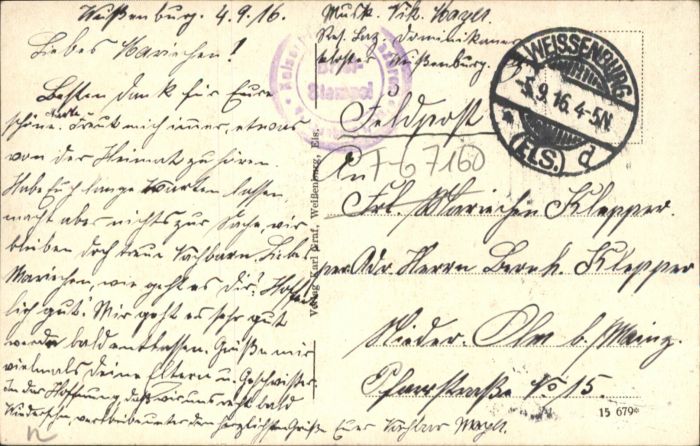 Weißenburg, 4.9.16.
Liebes Mariechen!
Besten Dank für Eure
schöne Karte. Freut mich immer, etwas
von der Heimat zu hören
Habe Euch lange warten lassen,
macht aber nichts zur Sache, wir
bleiben doch treue Nachbarn. Liebes
Mariechen, wie geht es Dir? Hoffent
lich gut! Mir geht es sehr gut
werde bald entlassen. Grüße mir
vielmals Deine Eltern u. Geschwister.
In der Hoffnung, daß wir uns recht bald
Wiedersehn, verbleibe unter den herzlichsten Grüße Euer Nachbar
Musk.
Res. Laz. Dominikaner
kloster Weißenburg.
Brief-
Stempel
WEISSENBURG
-5.9.16. 4-5N.
(ELS.) d
Feldpost
F-67160
An
Frl. Mariechen Klepper.
per Adr. Herrn Bernh. Klepper
Nieder-Olm b. Mainz.
Pfarrstraße No 15.
Verlag Karl Graf, Weißenburg, Els.
15 679*